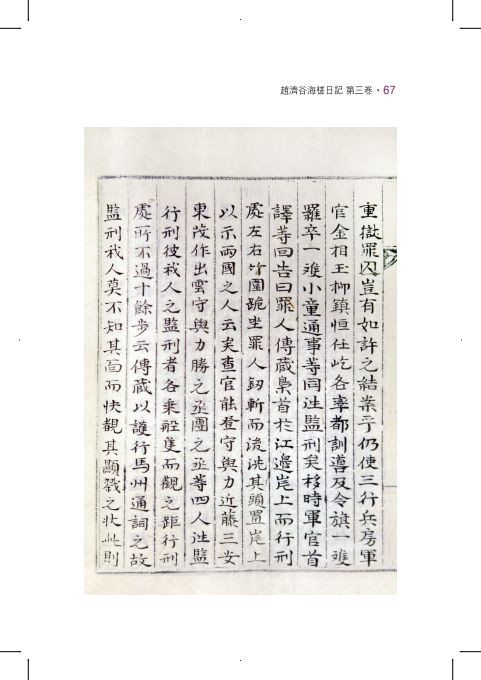 趙濟谷海槎日記 第三卷 • 67
重獄罪囚豈有如許之結案乎仍使三行兵房軍
官金相玉柳鎮恒任屹各率都訓導及令旗一雙
羅卒一雙小童通事等同往監刑矣移時軍官首
譯等回告曰罪人傳藏梟首於江邊崖上而行刑
處左右竹圍跪坐罪人釰斬而後洗其頭置崖上
以示兩國之人云矣查官能登守與力近藤三安
東茂作出雲守與力勝之丞團之丞等四人往監
行刑彼我人之監刑者各乘船隻而觀之距行刑
處所不過十餘步云傳藏以護行馬州通詞之故
監刑我人莫不知其面而快觀其顯戮之狀此則